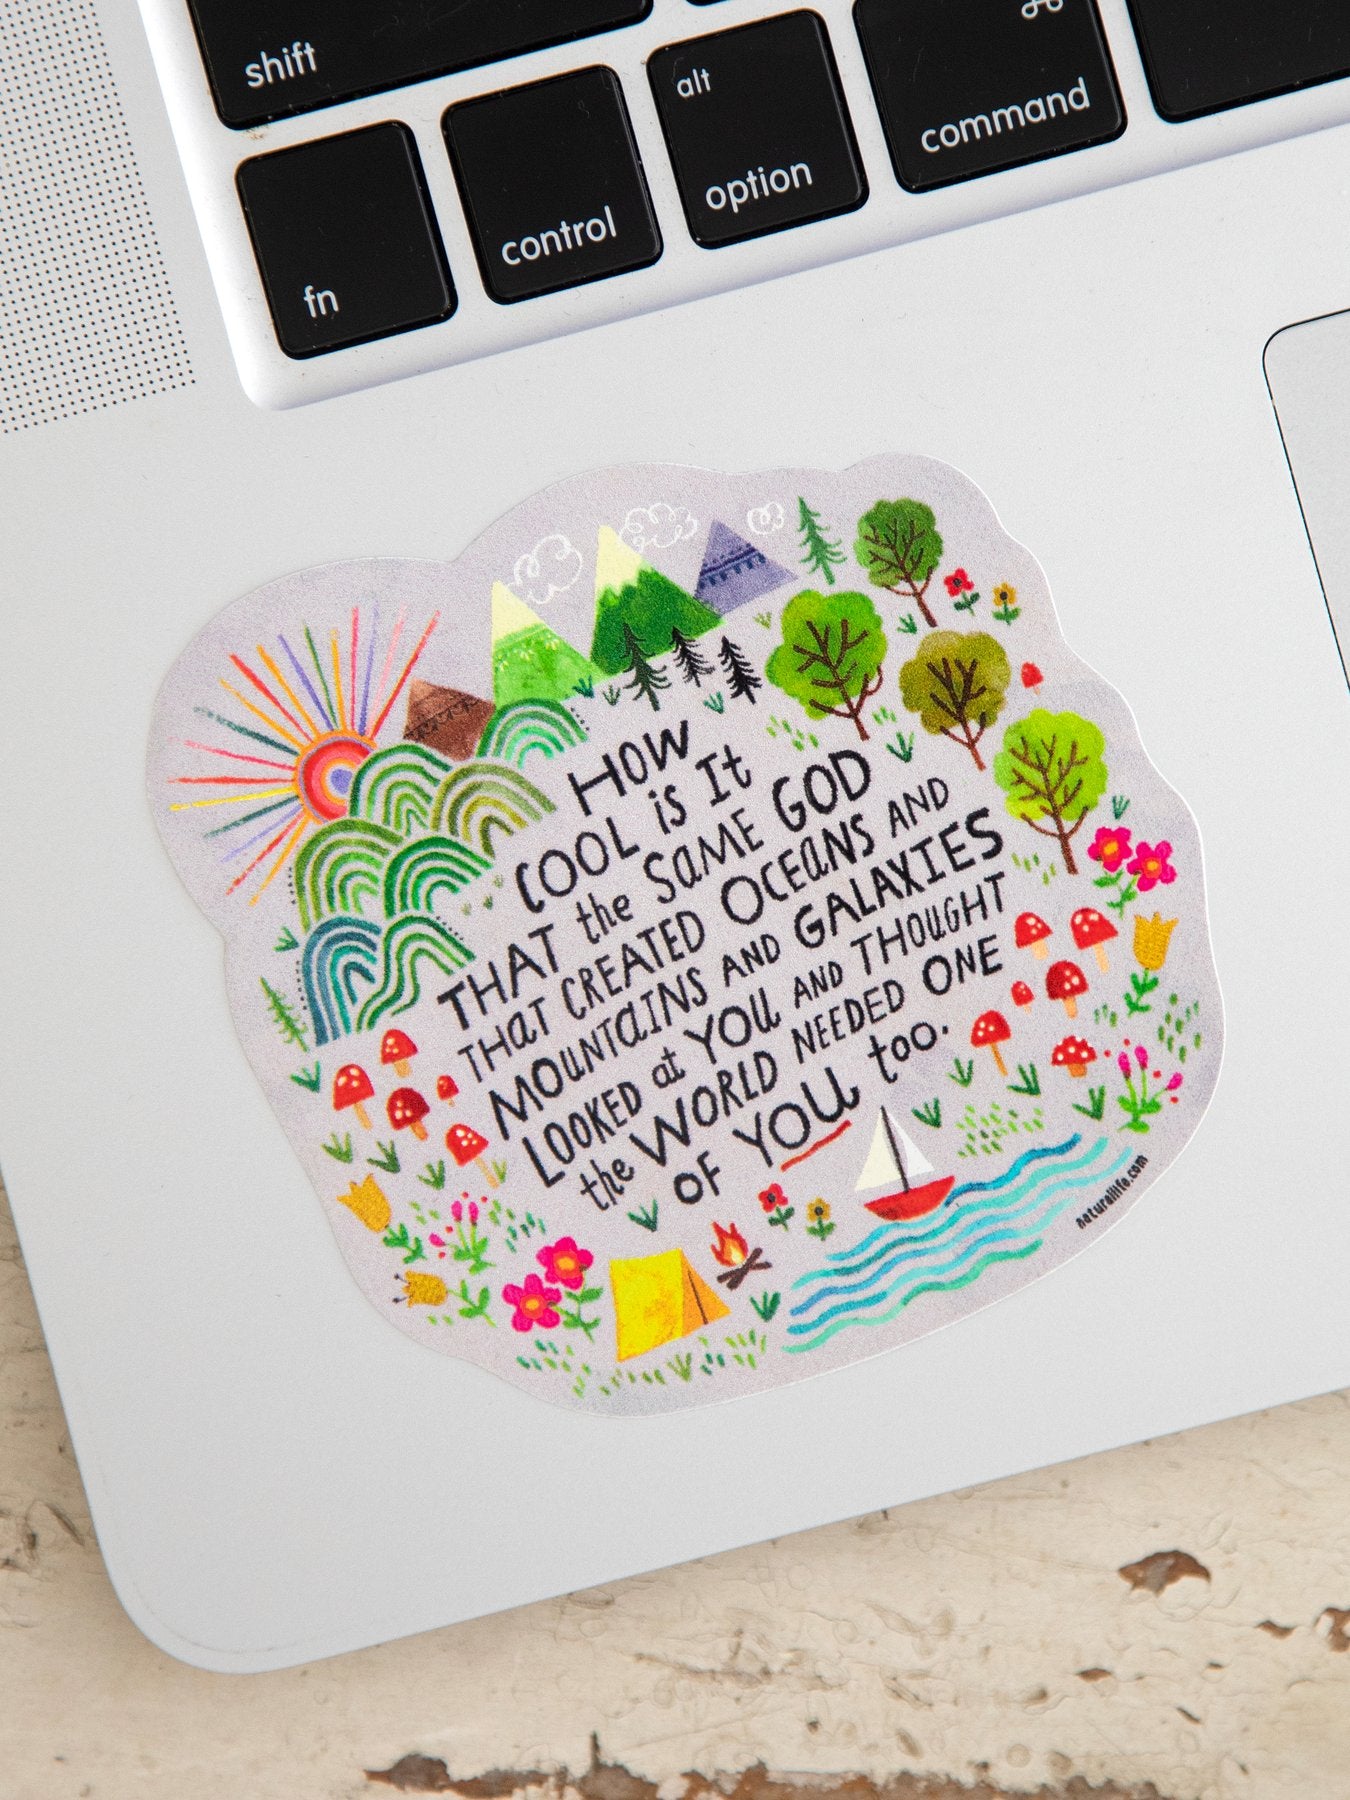 shift
alt
⌘
fn
control
option
command
HOW
COOL is It
THAT the SaME GOD
THaT CREATED OCEaNS AND
MOuNTaINS AND GALAXIES
LOOKED at YOU AND THOuGHT
the WORLD NEEDED ONE
OF YOU too.
naturallife.com